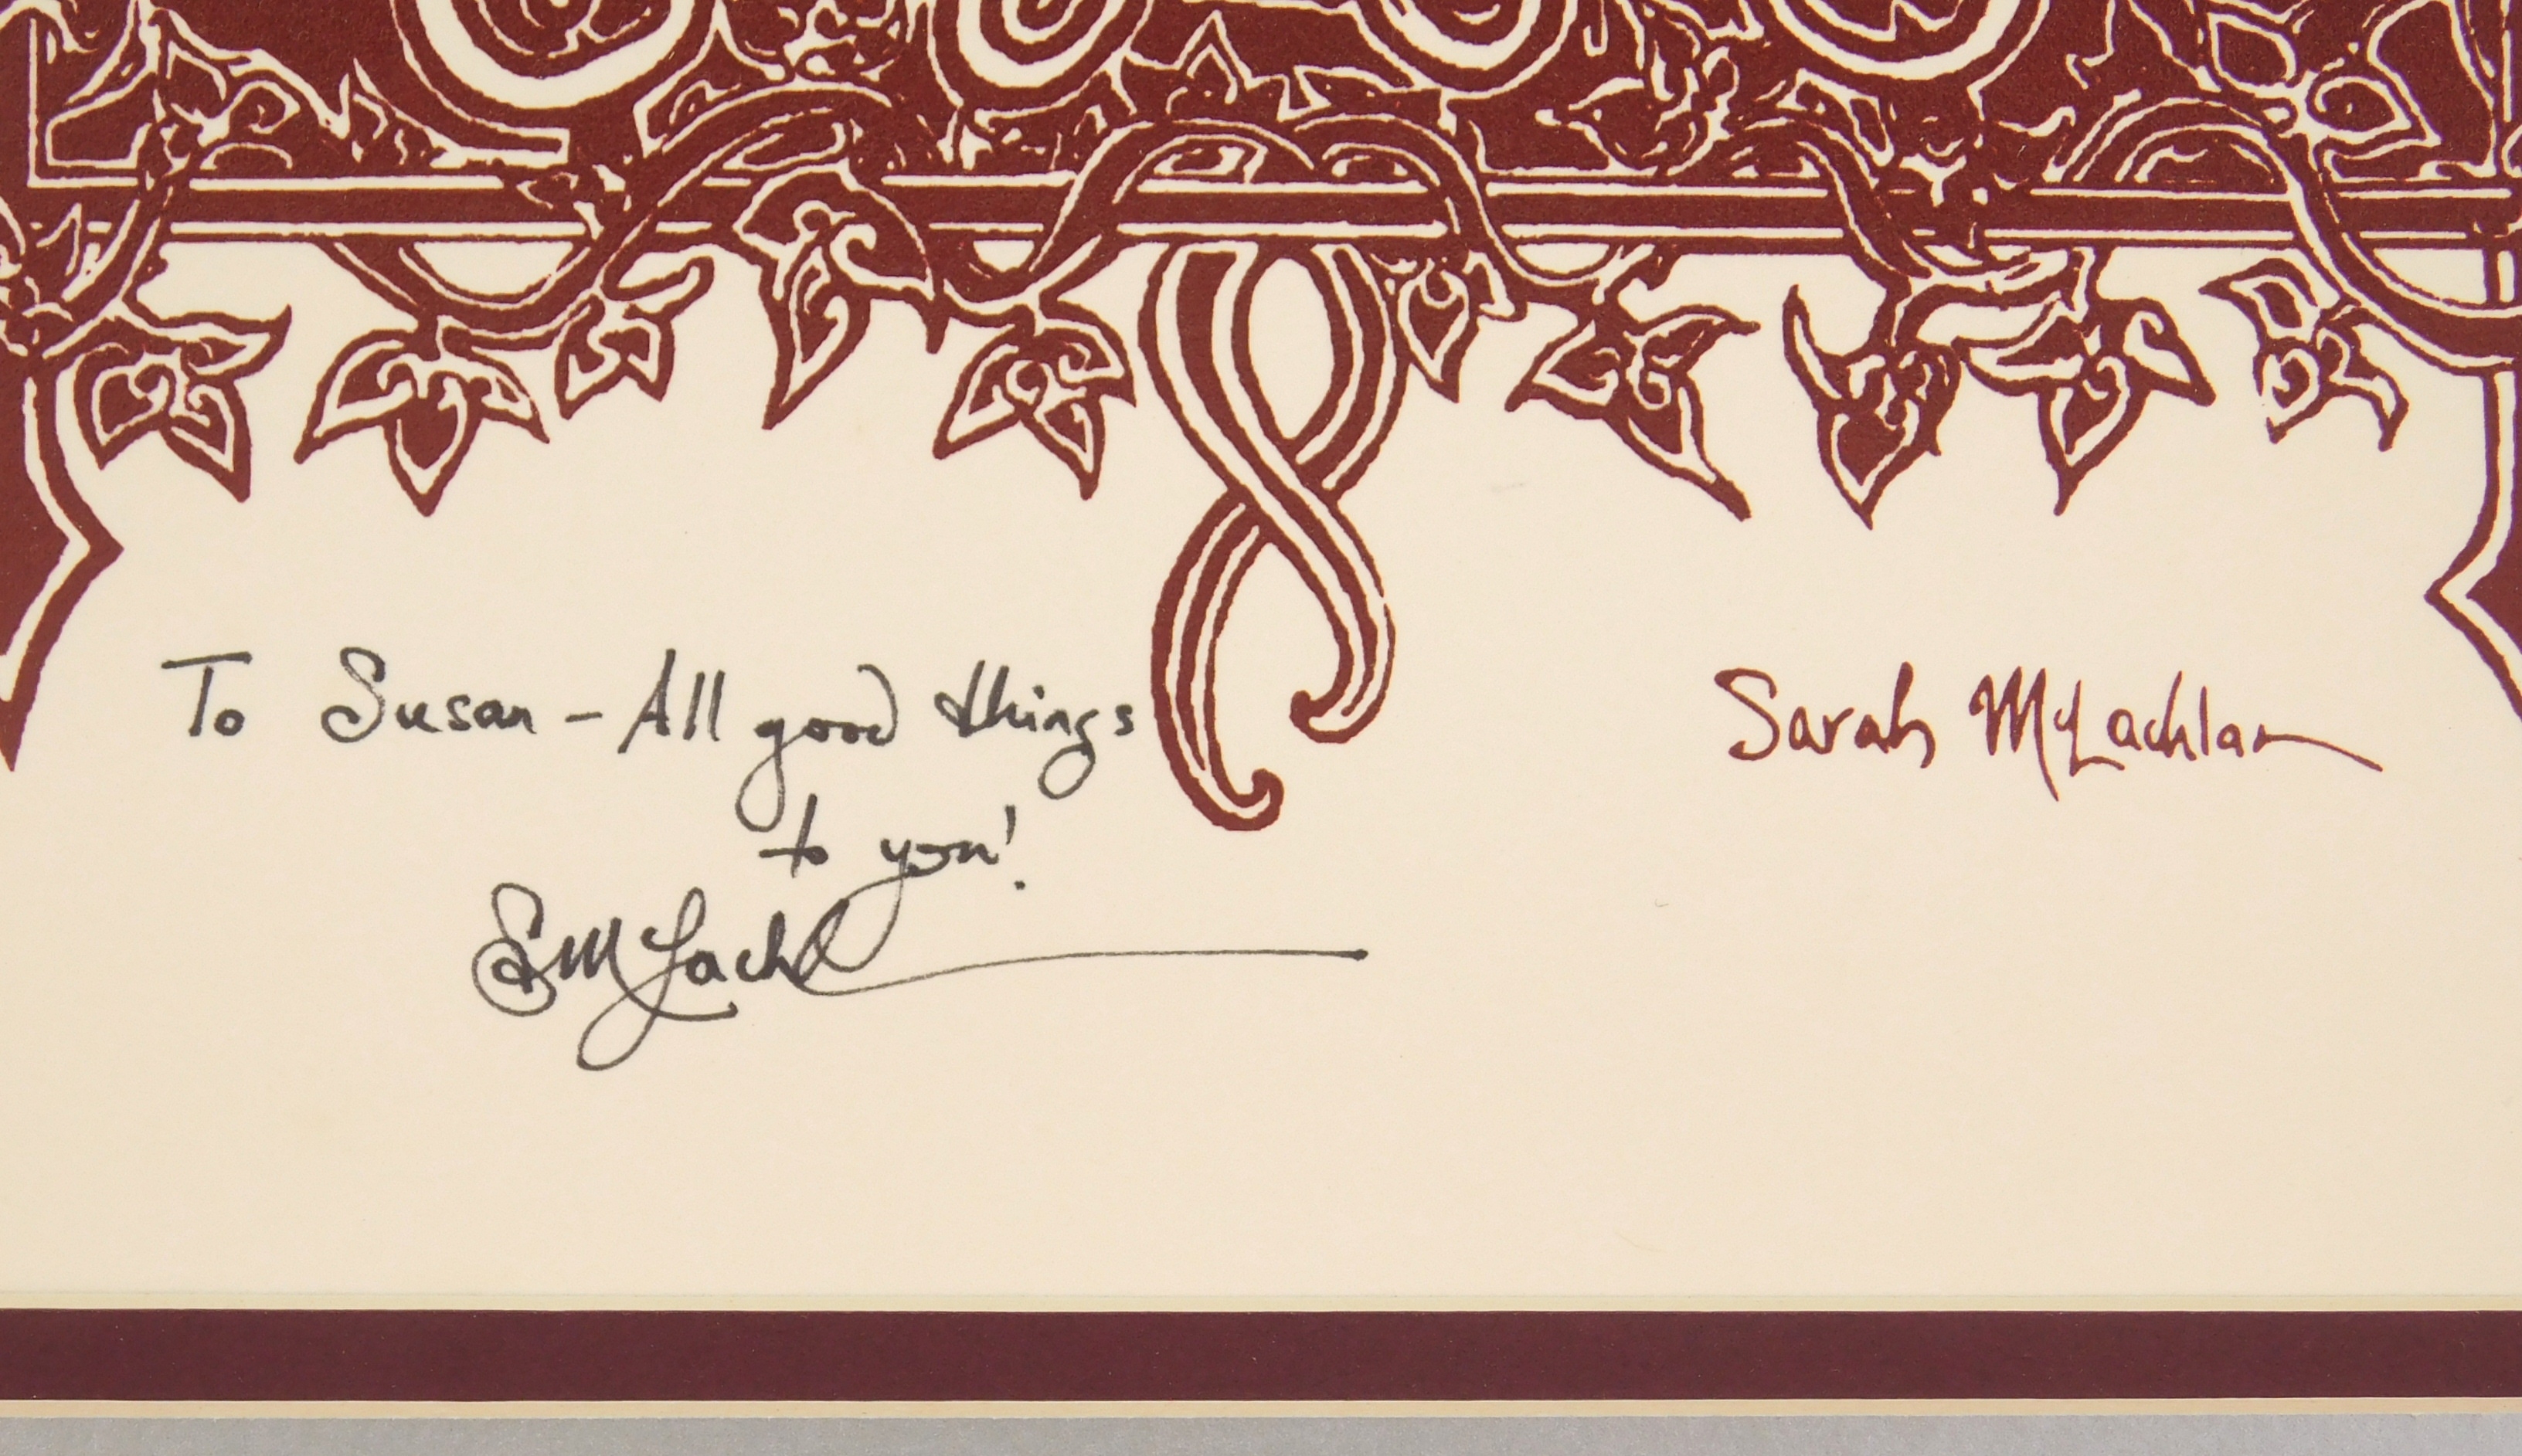 To Susan - All good things
to you!
SMcLachl
Sarah McLachlan